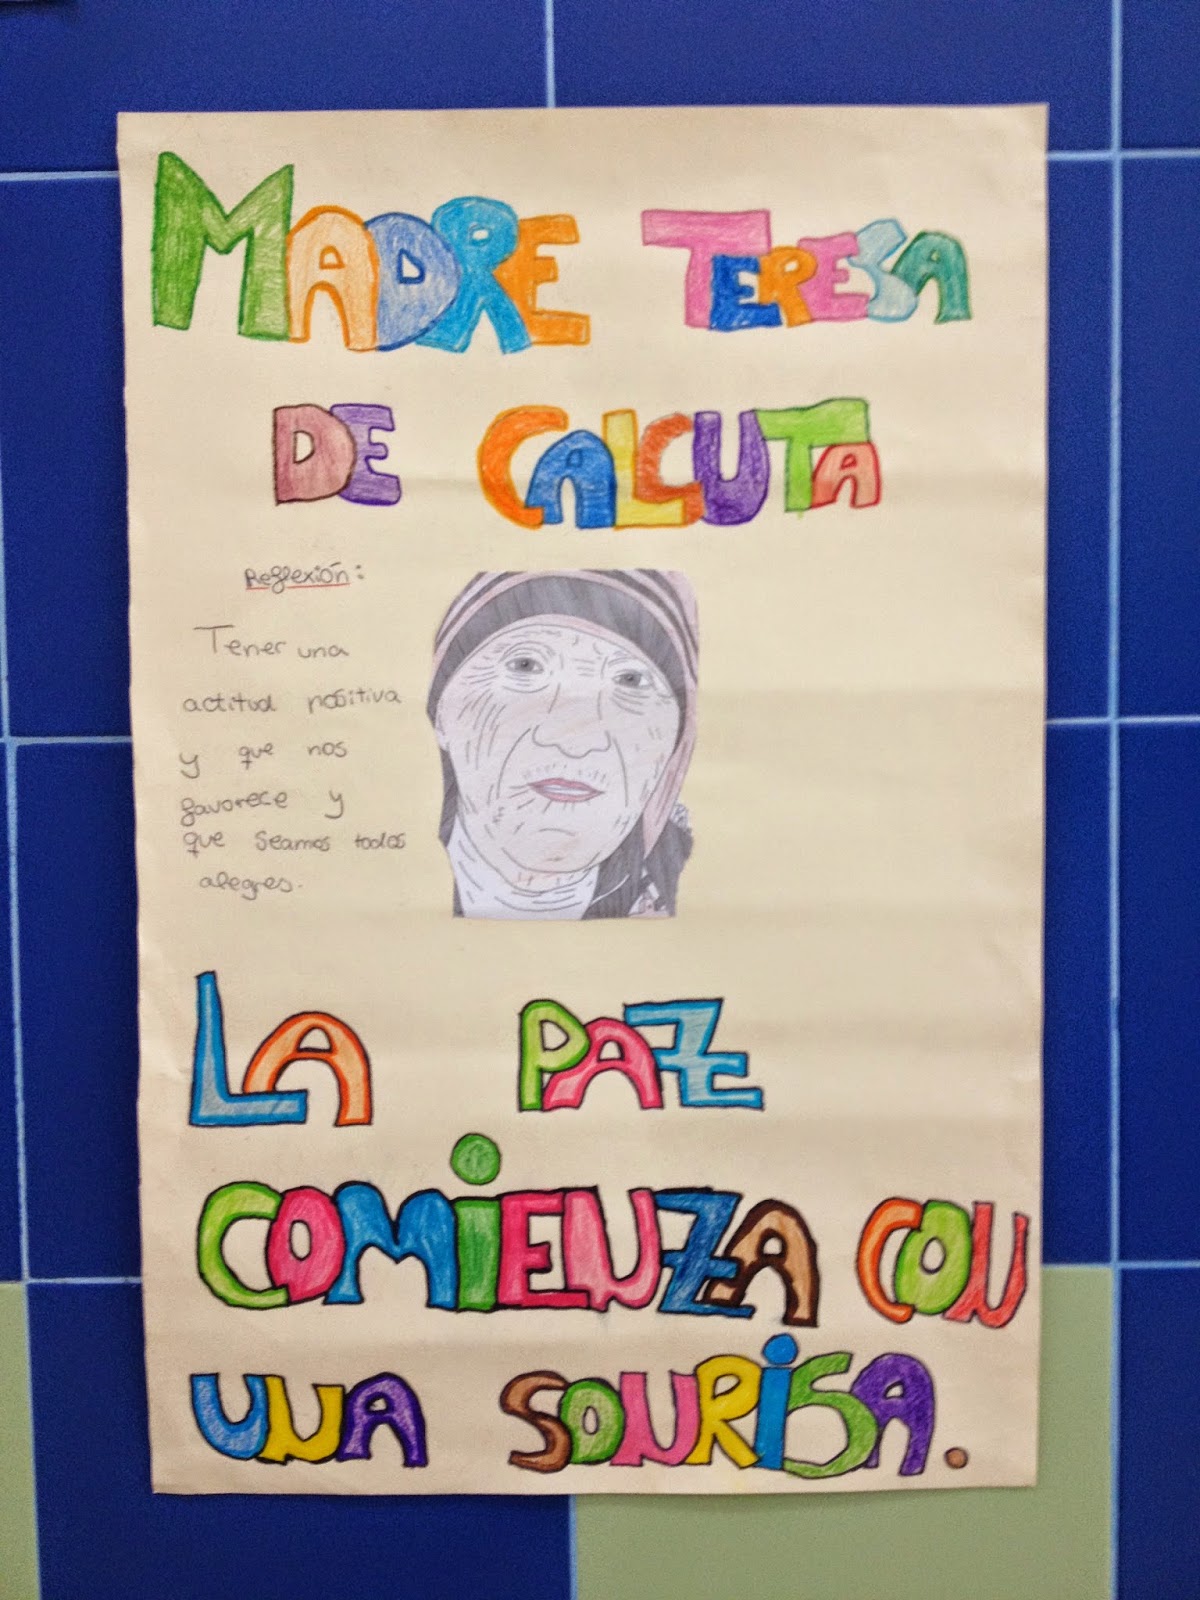 MADRE TERESA
DE CALCUTA
Reflexión:
Tener una
actitud positiva
y que nos
favorece y
que seamos todos
alegres.
LA PAZ
COMiENZA CON
UNA SONRiSA.